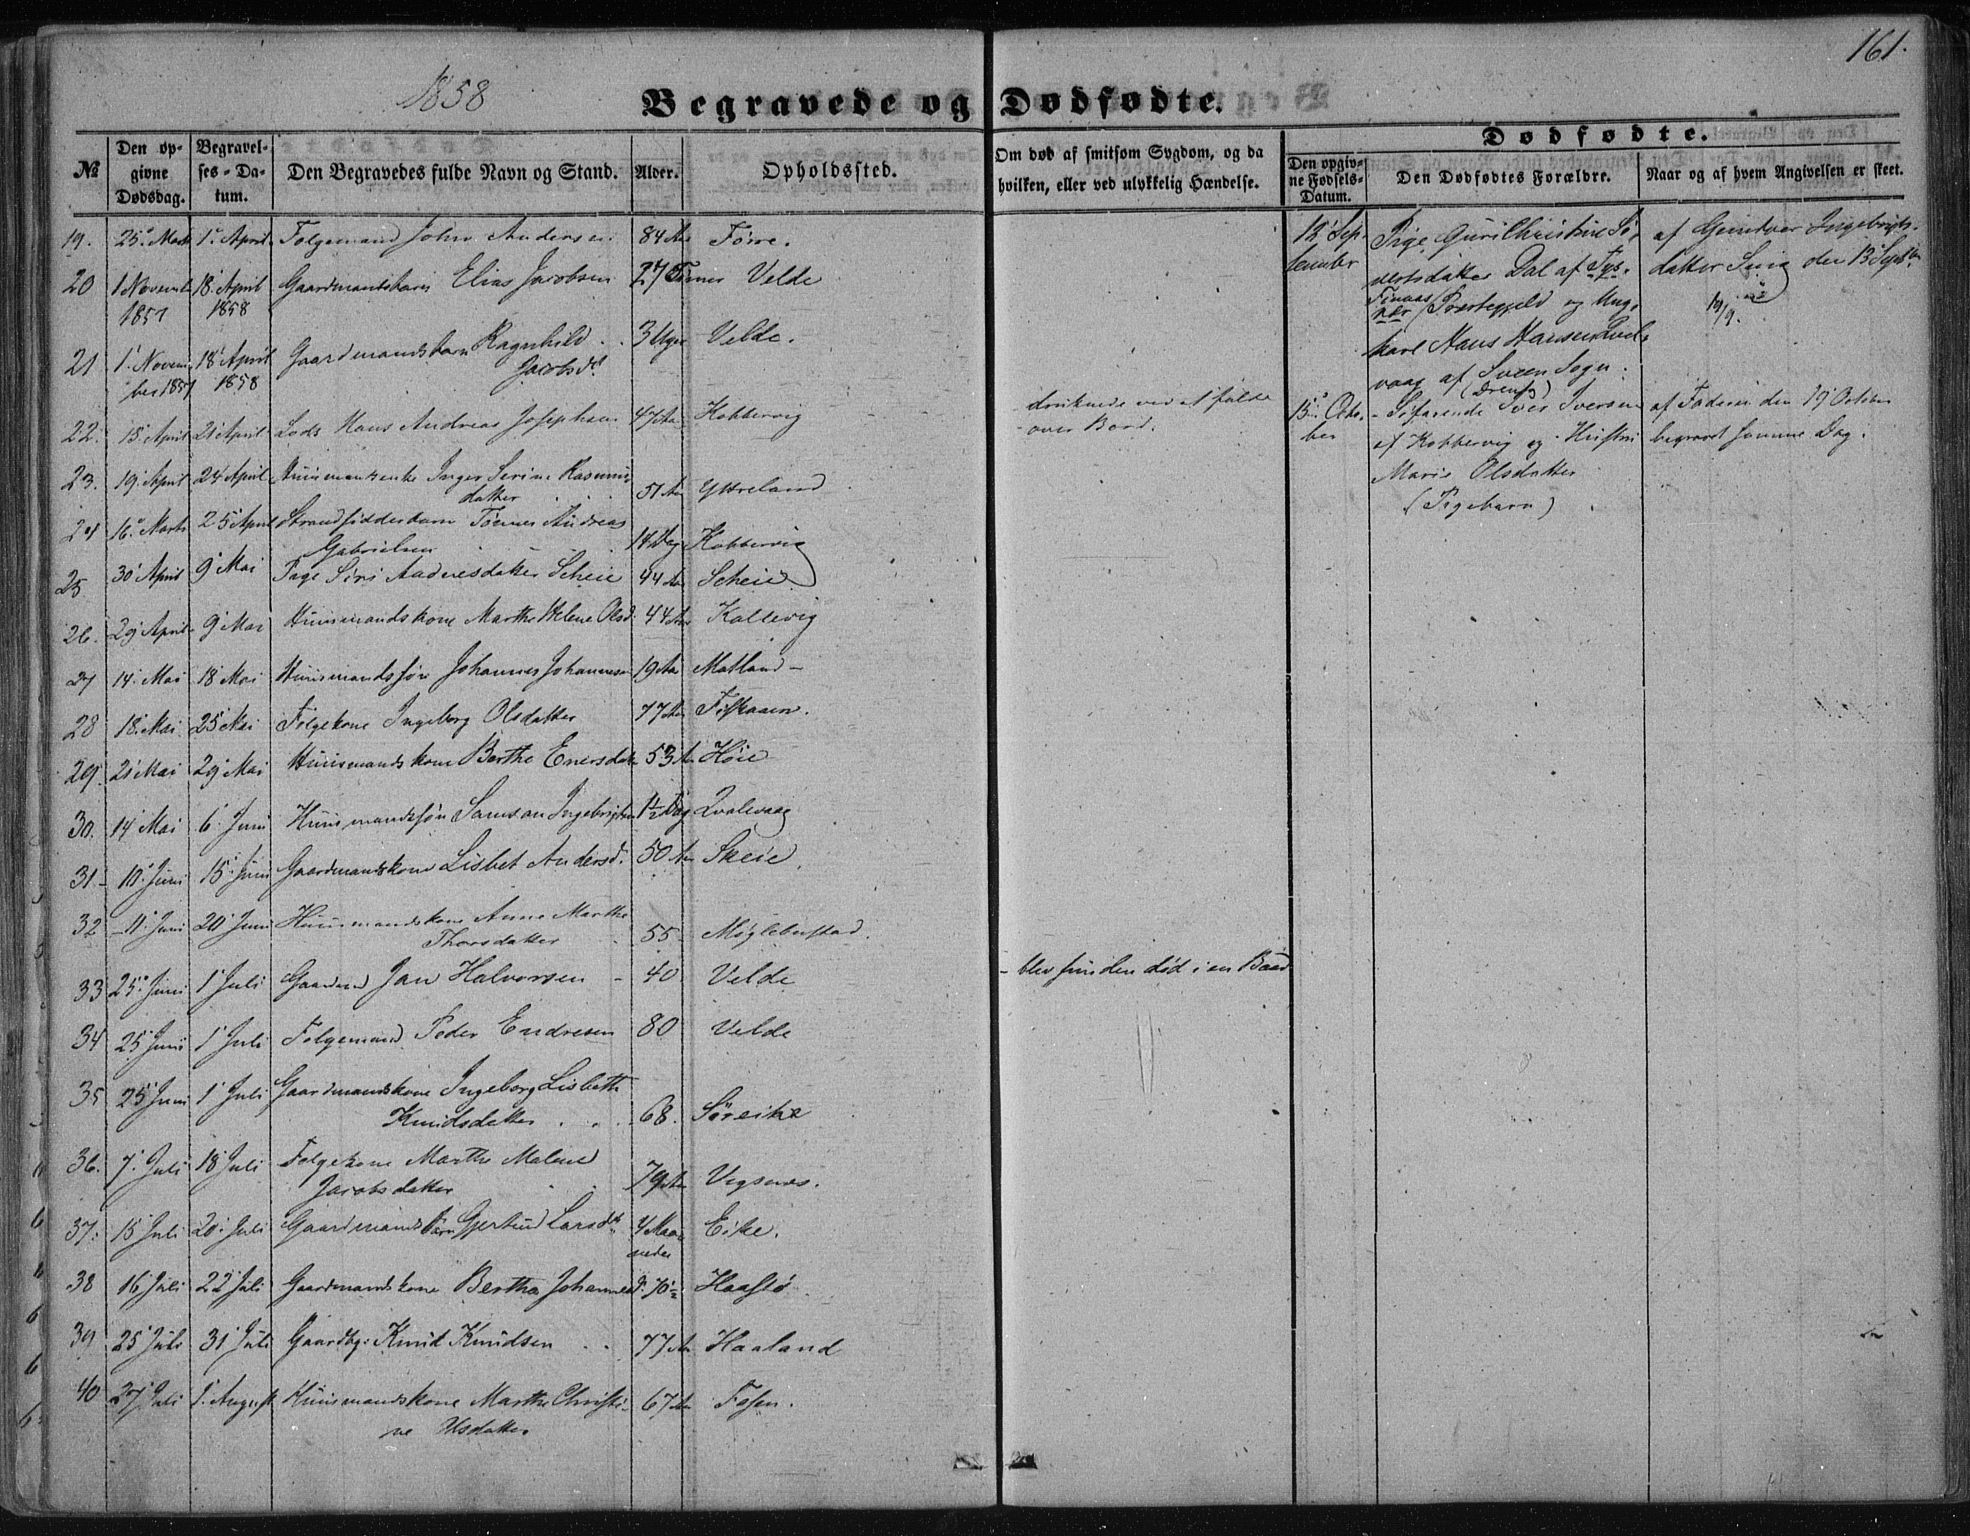 161.
1858
Begravede og Dødfødte.
Dødfødte.
№
Den op-
givne
Dødsdag.
Begravel-
ses-Da-
tum.
Den Begravedes fulde Navn og Stand.
Alder.
Opholdssted.
Om død af smitsom Sygdom, og da
hvilken, eller ved ulykkelig Hændelse.
Den opgiv-
ne Fødsels-
Datum.
Den Dødfødtes Forældre.
Naar og af hvem Angivelsen er skeet.
19. 25. Marts 1. April Folgemand John Andersen 84 Aar Førre.
20 1 Novemb 18. April Gaardmandsbarn Elias Jacobsen 27 Timer Velde
1857 1858
21 1. Novem- 18 April Gaardmandsbarn Ragnhild 3 Uger Velde.
ber 1857 1858 Jacobsdt.
22. 15. April 21 April Lods Hans Andreas Josephsen 47 Aar Kobbervig druknede ved at falde
over Bord.
23. 19. April 24 April Huusmandsenke Inger Serine Rasmus-
datter 51 Aar Yttreland
24 16. Marts 25 April Strandsidderbarn Tønnes Andreas
Gabrielsen 14 Dag Kobbervig
25 30 April 9 Mai Pige Siri Aadnesdatter Scheie 44 Aar Scheie
26. 29 April 9 Mai Huusmandskone Marthe Helene Olsd. 44 Aar Kallevig
27 14. Mai 18 Mai Huusmandssøn Johannes Johannesen 19 Aar Matland
28 18. Mai 25 Mai Folgekone Ingeborg Olsdatter 77 Aar Fiskaaen.
29. 21 Mai 29 Mai Huusmandskone Berthe Enersdatter 53 A Høie
30. 14 Mai 6. Juni Huusmandssøn Samson Ingebrigtsen 1½ Dag Qvalevaag
31. 10. Juni 15. Juni Gaardmandskone Lisbet Andersd. 50 Aar Skeie.
32 11. Juni 20 Juni Huusmandskone Anne Marthe
Thorsdatter 55 Møglebustad.
33 25. Juni 1 Juli Gaardmd Jan Halvorsen 40 Velde - blev funden død i en Baad
34 25 Juni 1 Juli Folgemand Peder Endresen 80 Velde
35 25 Juni 1 Juli Gaardmandskone Ingeborg Lisbeth
Knudsdatter 68. Søreike
36. 7. Juli 18 Juli Folgekone Marthe Malene
Jacobsdatter 79 Aar Vigsnes.
37. 15 Juli 20. Juli Gaardmandsbarn Gjertrud Larsdt. 4 Maa- Eike.
neder
38 16 Juli 22 Juli Gaardmandskone Bertha Johannesd. 70½ Haastø
39 25 Juli 31 Juli Gaardbgr Knud Knudsen 77 Aar Haaland
40 27 Juli 1. August Huusmandskone Marthe Christi-
ne Olsdatter 67 Aar Fosen.
12 Sep-
tember
Pige Guri Christine Si-
vertsdatter Dal af Tys-
Finaas
nes Præstegjeld og Ung-
karl Hans Hansen
vaag af Sveen Sogn.
(Dreng)
af Gunvor Ingebrigts-
datter den 13 Septbr.
19/9.
15. Octo-
ber
Søfarende Iver Iversen
af Kobbervig og Hustru
Maris Olsdatter
(Pigebarn)
af Faderen den 19 October
begravet samme Dag.